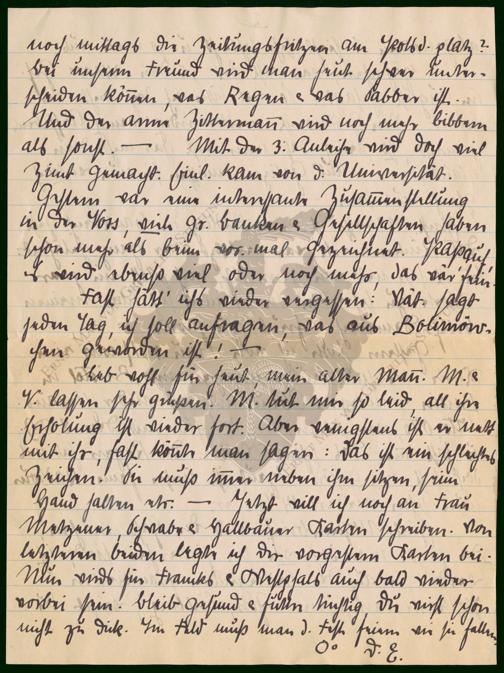 noch mittags die Zeitungsfritzen am Potsd. platz?
bei unserm Freund wird man heut schwer unter-
scheiden können, was Regen & was Sabber ist.
Und der arme Zittermann wird noch mehr bibbern
als sonst. — Mit der 3. Anleihe wird doch viel
Zimt gemacht. Einl. kam von d. Universität.
Gestern war eine interessante Zusammenstellung
in der Voss, viele gr. banken & Gesellschaften haben
schon mehr als beim vor. mal gezeichnet. Paß auf,
es wird ebenso viel oder noch mehr, das wär' fein.
Fast hätt' ich's wieder vergessen: Vat sagt
jeden Tag, ich soll anfragen, was aus Bolimów-
chen geworden ist! —
Leb wohl für heut, mein alter Mann. M. &
V. lassen sehr grüßen. M. tut mir so leid, all ihre
Erholung ist wieder fort. Aber wenigstens ist er nett
mit ihr, fast könnte man sagen: Das ist ein schlechtes
Zeichen. Sie muß immer neben ihm sitzen, seine
Hand halten etc. — Jetzt will ich noch an Frau
Metzener, Schwabe & Hallbauer Karten schreiben. Von
letzteren beiden legte ich dir vorgestern Karten bei.
Nun wird's für Franks & Westphals auch bald wieder
vorbei sein. bleib gesund & futtre tüchtig, du wirst schon
nicht zu dick. Im Feld muß man d. Feste feiern wie sie fallen.
D. E.